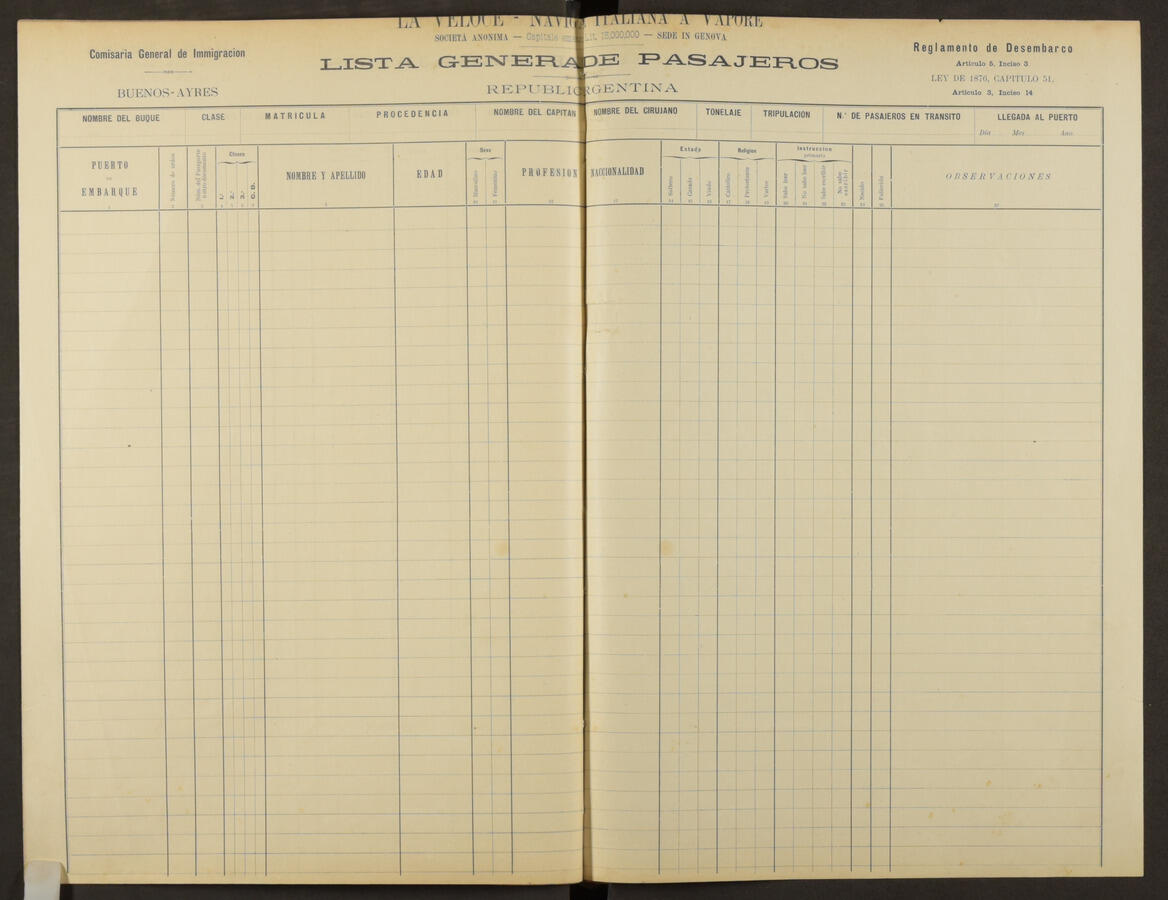 LA VELOCE - NAVIG ITALIANA A VAPORE
SOCIETÀ ANONIMA — Capitale Lit. 15,000,000 — SEDE IN GENOVA
LISTA GENERA DE PASAJEROS
REPUBLIC RGENTINA
Comisaria General de Immigracion
BUENOS-AYRES
Reglamento de Desembarco
Articulo 5, Inciso 3
LEY DE 1876, CAPITULO 51.
Articulo 3, Inciso 14
NOMBRE DEL BUQUE CLASE MATRICULA PROCEDENCIA NOMBRE DEL CAPITAN NOMBRE DEL CIRUJANO TONELAJE TRIPULACION N.º DE PASAJEROS EN TRANSITO LLEGADA AL PUERTO
Dia Mes Ano
PUERTO
DE
EMBARQUE
Número de orden
Núm. del Pasaporte
u otro documento
Clases
1.ª
2.ª
3.ª
NOMBRE Y APELLIDO
EDAD
Sexo
Masculino
Femenino
PROFESION
NACCIONALIDAD
Estado
Soltero
Casado
Viudo
Religion
Catolico
Protestante
Varios
Instruccion
primaria
Sabe leer
No sabe leer
Sabe escribir
No sabe
escribir
Nacido
Fallecido
OBSERVACIONES